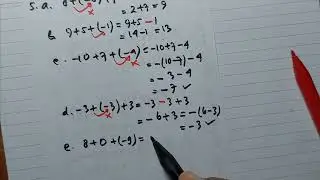 5. a.
= 2+7 = 9
b. 9+5+(-1) = 9+5-1
= 14-1 = 13
c. -10+7+(-4) = -10+7-4
= -(10-7)-4
= -3-4
= -7 ✓
d. -3+(-3)+3 = -3-3+3
= -6+3 = -(6-3)
= -3 ✓
e. 8+0+(-9) =